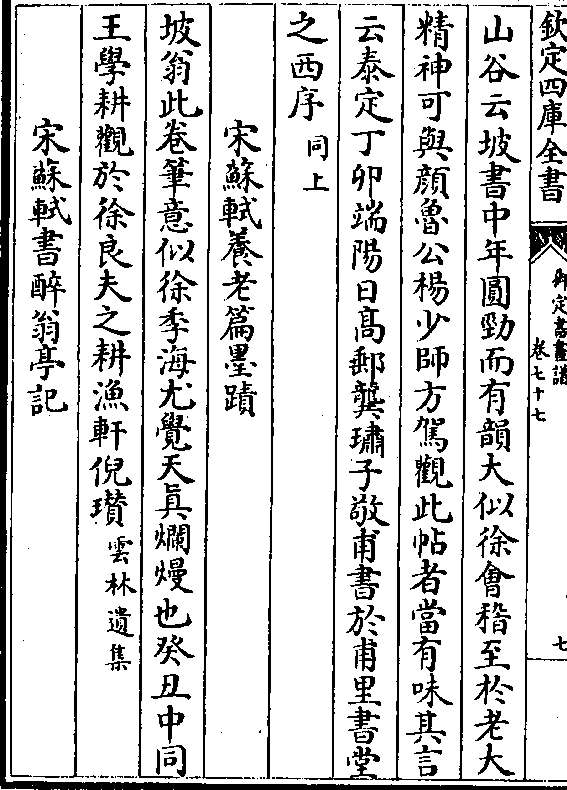 欽定四庫全書
御定書畫譜
卷七十七
七
山谷云坡書中年圓勁而有韻大似徐會稽至於老大
精神可與顔魯公楊少師方駕觀此帖者當有味其言
云泰定丁卯端陽日髙郵龔璛子敬甫書於甫里書堂
之西序同上
宋蘇軾養老篇墨蹟
坡翁此卷筆意似徐季海尤覺天真爛熳也癸丑中同
王學耕觀於徐良夫之耕漁軒倪瓚雲林遺集
宋蘇軾書醉翁亭記